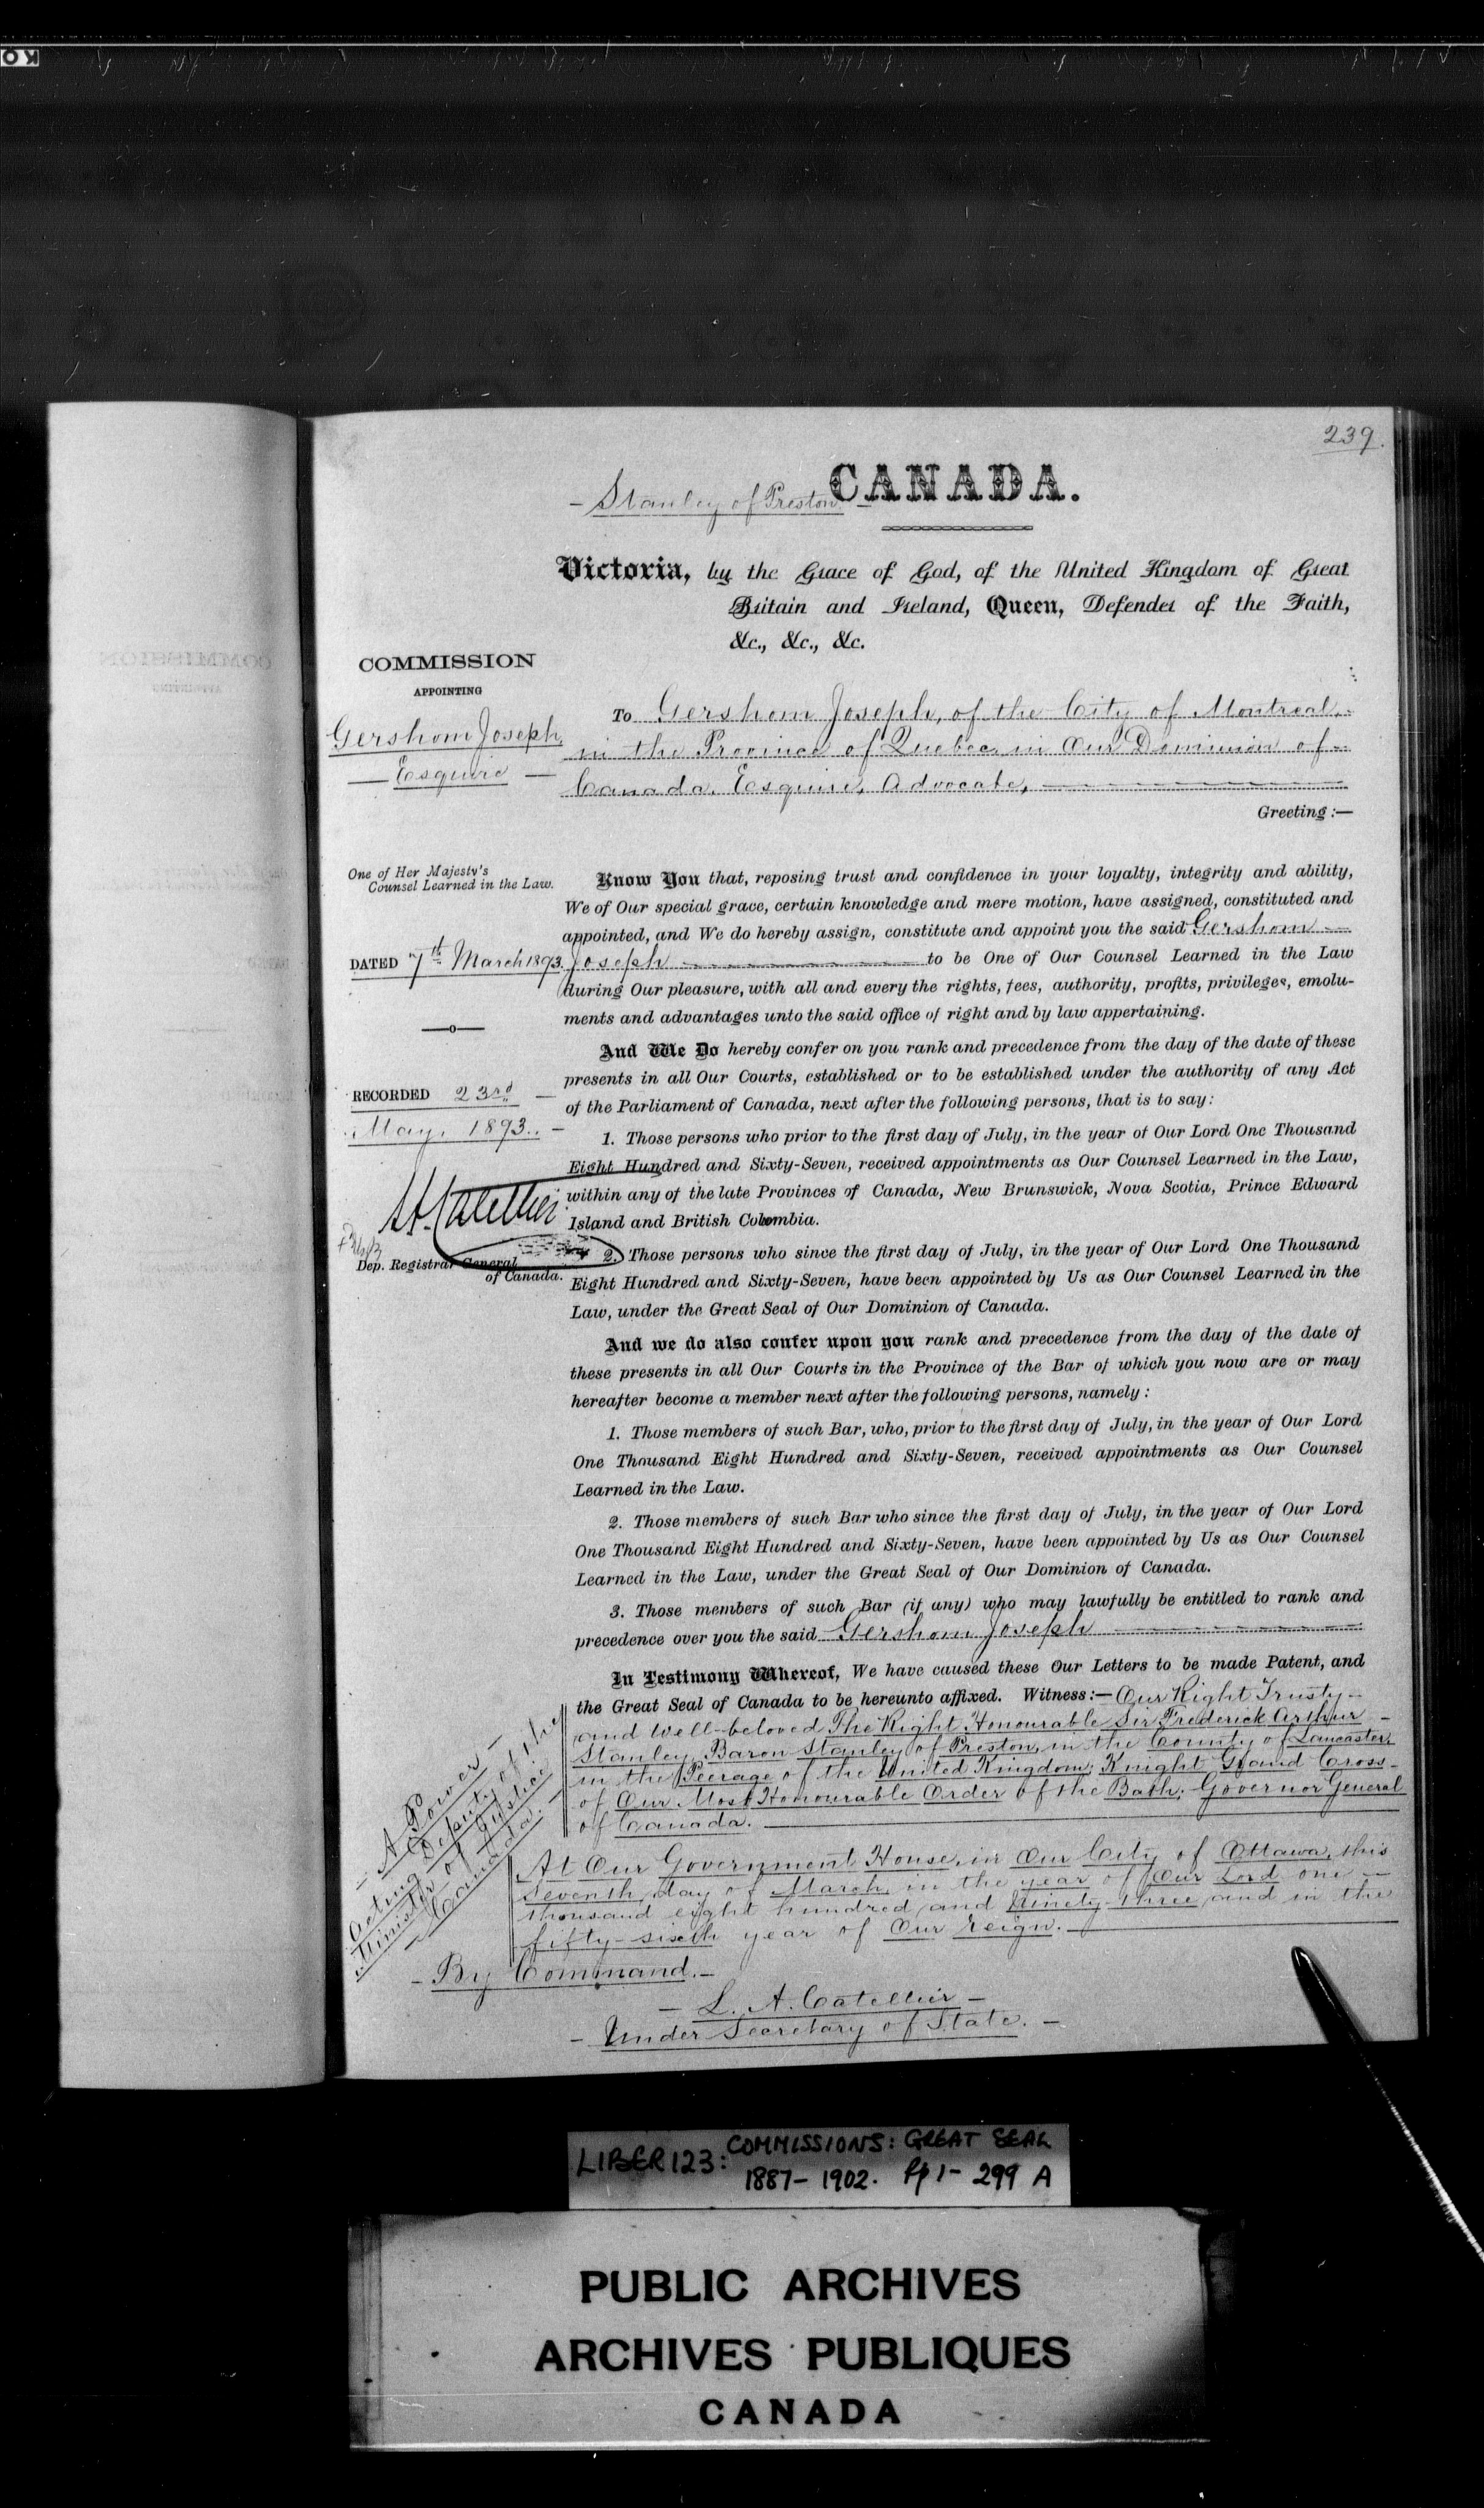 239.
CANADA.
- Stanley of Preston -
Victoria, by the Grace of God, of the United Kingdom of Great
Britain and Ireland, Queen, Defender of the Faith,
&c., &c., &c.
COMMISSION
APPOINTING
Gershom Joseph
— Esquire —
To Gershom Joseph, of the City of Montreal,
in the Province of Quebec, in Our Dominion of
Canada, Esquire, Advocate,
Greeting:—
One of Her Majesty's
Counsel Learned in the Law.
Know You that, reposing trust and confidence in your loyalty, integrity and ability,
We of Our special grace, certain knowledge and mere motion, have assigned, constituted and
appointed, and We do hereby assign, constitute and appoint you the said Gershom —
DATED 7th March 1893.
Joseph — to be One of Our Counsel Learned in the Law
during Our pleasure, with all and every the rights, fees, authority, profits, privileges, emolu-
ments and advantages unto the said office of right and by law appertaining.
And We Do hereby confer on you rank and precedence from the day of the date of these
presents in all Our Courts, established or to be established under the authority of any Act
of the Parliament of Canada, next after the following persons, that is to say:
RECORDED 23rd —
May, 1893. —
1. Those persons who prior to the first day of July, in the year of Our Lord One Thousand
Eight Hundred and Sixty-Seven, received appointments as Our Counsel Learned in the Law,
within any of the late Provinces of Canada, New Brunswick, Nova Scotia, Prince Edward
Island and British Columbia.
Catellier
Dep. Registrar General
of Canada.
2. Those persons who since the first day of July, in the year of Our Lord One Thousand
Eight Hundred and Sixty-Seven, have been appointed by Us as Our Counsel Learned in the
Law, under the Great Seal of Our Dominion of Canada.
And we do also confer upon you rank and precedence from the day of the date of
these presents in all Our Courts in the Province of the Bar of which you now are or may
hereafter become a member next after the following persons, namely:
1. Those members of such Bar, who, prior to the first day of July, in the year of Our Lord
One Thousand Eight Hundred and Sixty-Seven, received appointments as Our Counsel
Learned in the Law.
2. Those members of such Bar who since the first day of July, in the year of Our Lord
One Thousand Eight Hundred and Sixty-Seven, have been appointed by Us as Our Counsel
Learned in the Law, under the Great Seal of Our Dominion of Canada.
3. Those members of such Bar (if any) who may lawfully be entitled to rank and
precedence over you the said Gershom Joseph
In Testimony Whereof, We have caused these Our Letters to be made Patent, and
the Great Seal of Canada to be hereunto affixed. Witness:— Our Right Trusty —
and Well-beloved The Right Honourable Sir Frederick Arthur —
Stanley, Baron Stanley of Preston, in the County of Lancaster,
in the Peerage of the United Kingdom; Knight Grand Cross —
of Our Most Honourable Order of the Bath; Governor General
of Canada.
- A Power -
Acting Deputy of the
Minister of Justice
- Canada. -
At Our Government House, in Our City of Ottawa, this
seventh day of March, in the year of Our Lord one —
thousand eight hundred and ninety-three, and in the
fifty-sixth year of Our Reign.
- By Command. -
- L. A. Catellier -
- Under Secretary of State. -
LIBER 123: COMMISSIONS: GREAT SEAL
1887-1902. Pp 1- 299 A
PUBLIC ARCHIVES
ARCHIVES PUBLIQUES
CANADA